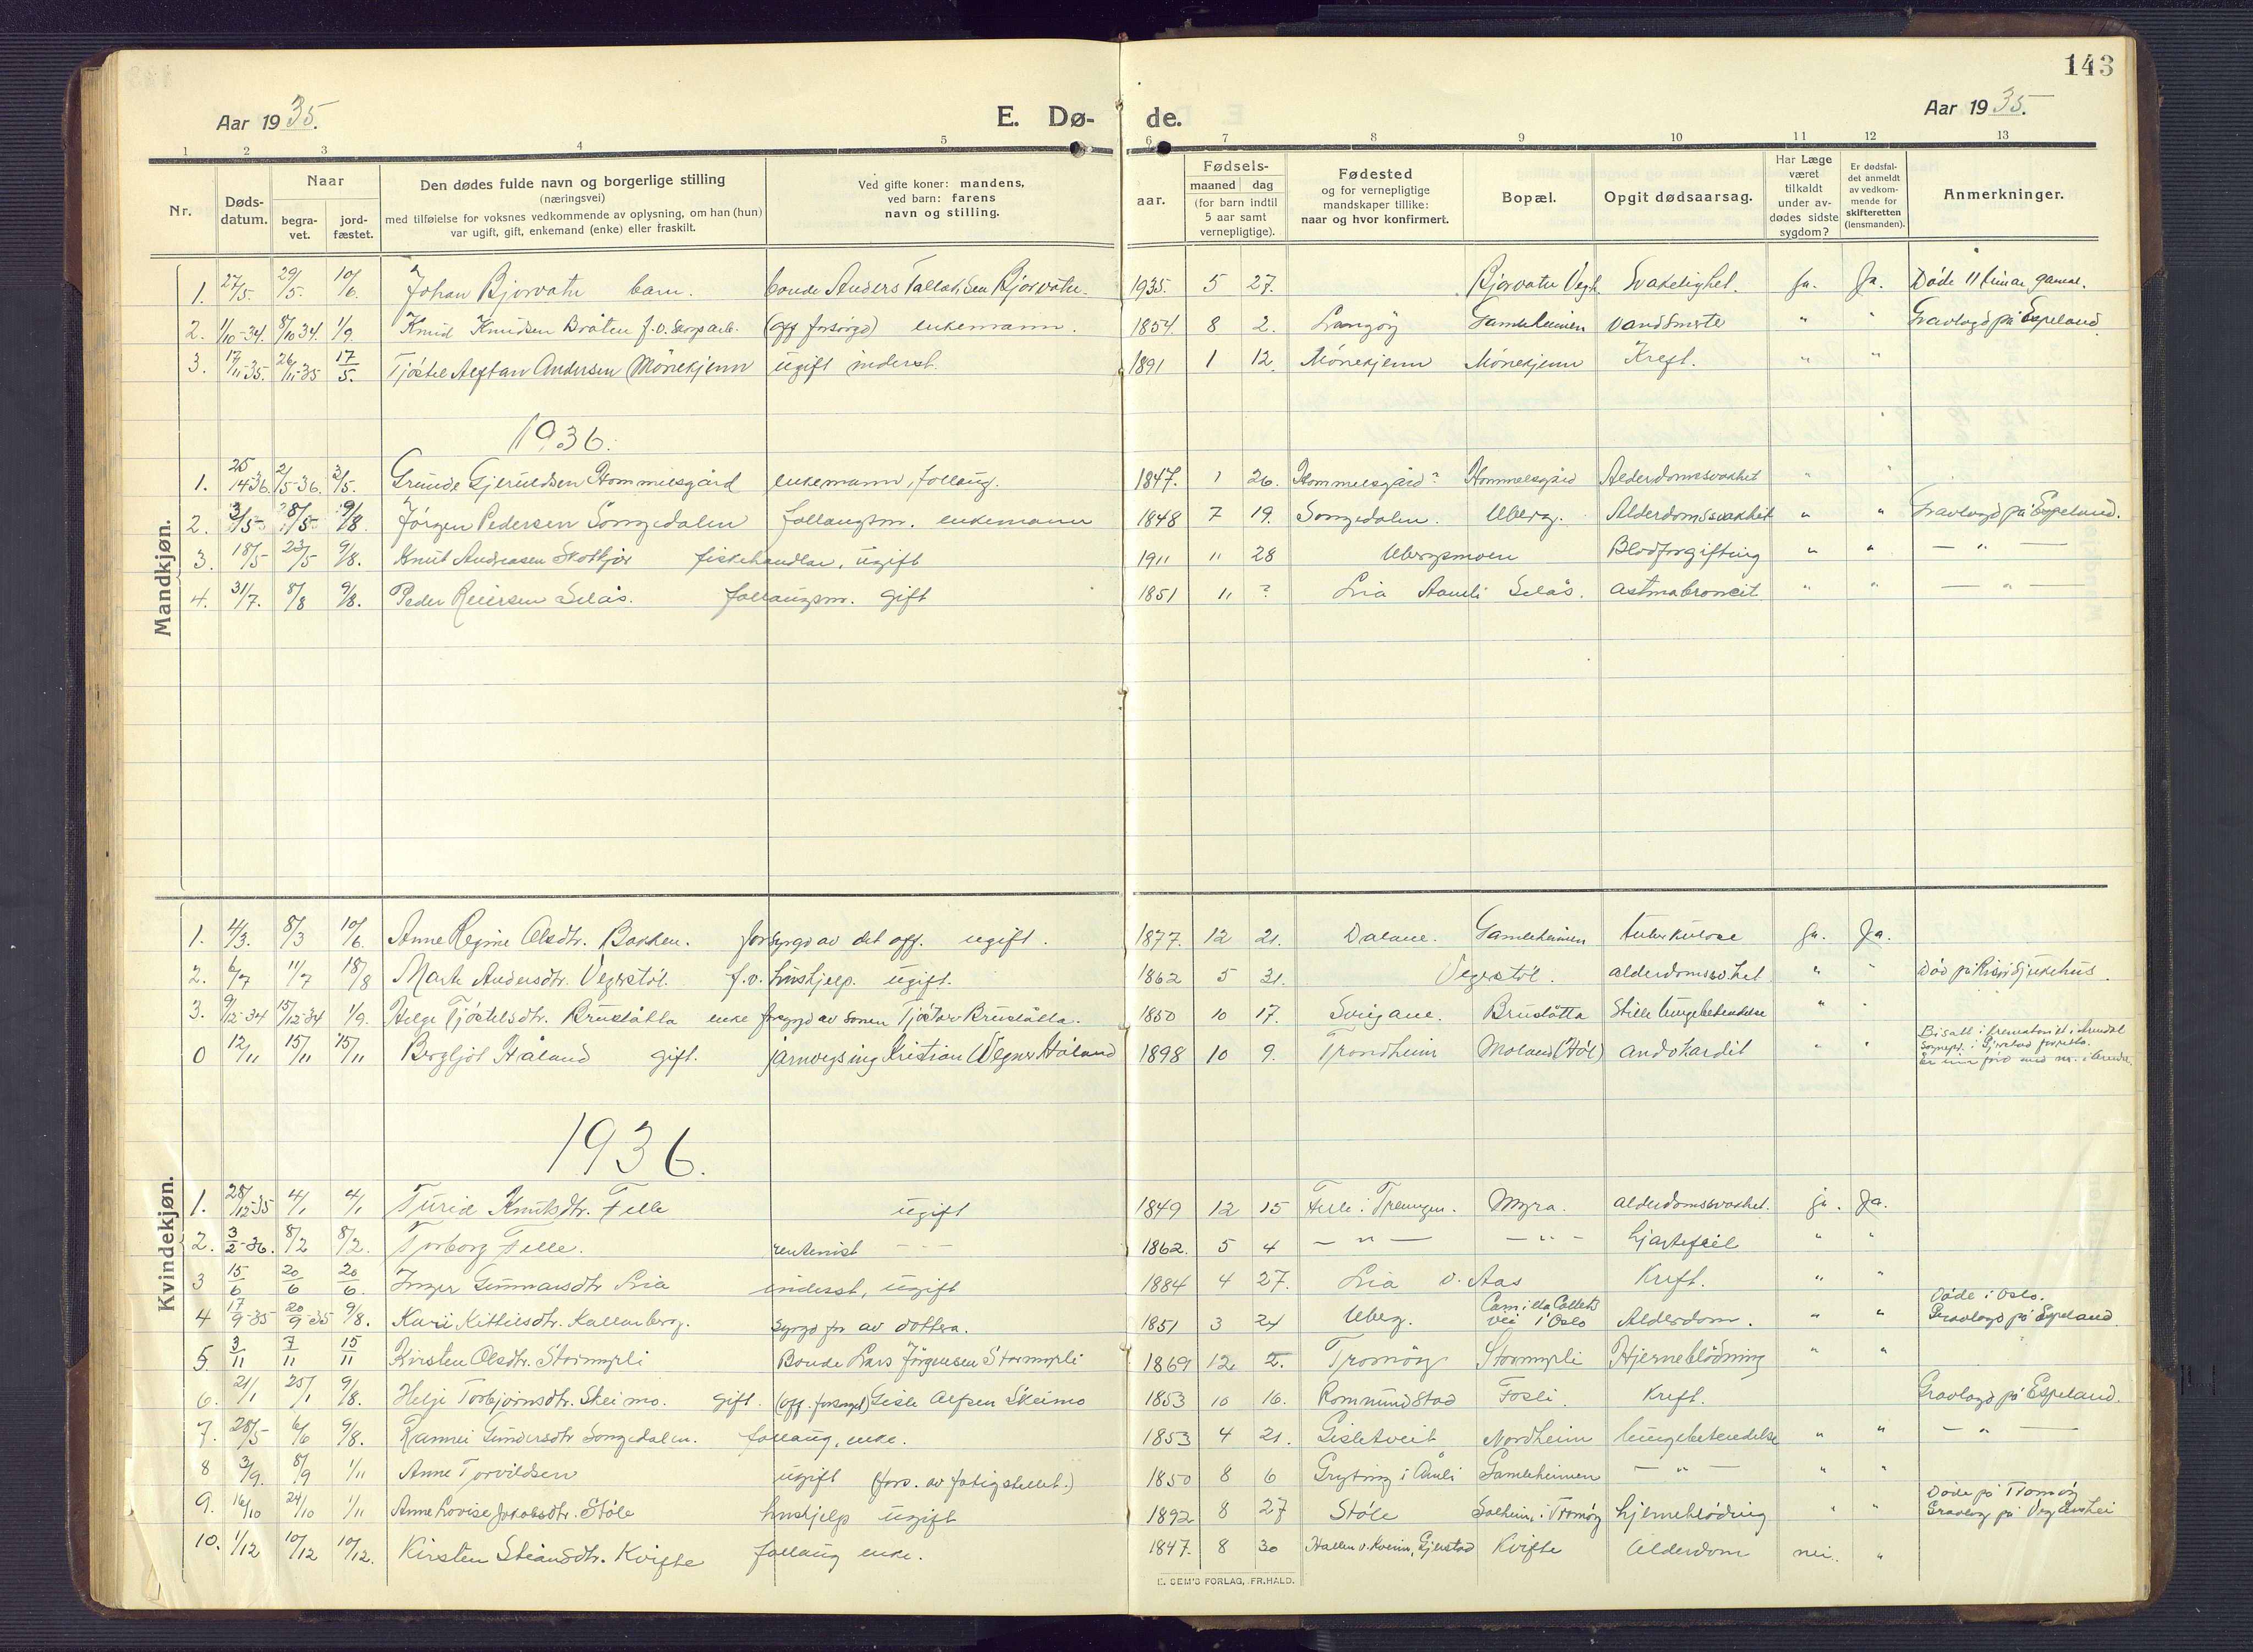 143
Aar 1935. E. Dø- de. Aar 1935.
1 2 3 4 5 6 7 8 9 10 11 12 13
Nr.
Døds-
datum.
Naar
begra-
vet.
jord-
fæstet.
Den dødes fulde navn og borgerlige stilling
(næringsvei)
med tilføielse for voksnes vedkommende av oplysning, om han (hun)
var ugift, gift, enkemand (enke) eller fraskilt.
Ved gifte koner: mandens,
ved barn: farens
navn og stilling.
aar.
Fødsels-
maaned dag
(for barn indtil
5 aar samt
vernepligtige).
Fødested
og for vernepligtige
mandskaper tillike:
naar og hvor konfirmert.
Bopæl.
Opgit dødsaarsag.
Har Læge
været
tilkaldt
under av-
dødes sidste
sygdom?
Er dødsfal-
det anmeldt
av vedkom-
mende for
skifteretten
(lensmanden).
Anmerkninger.
Mandkjøn.
1. 27/5. 29/5. 10/6. Johan Bjorvatn barn. bonde Anders Tallaksen Bjorvatn. 1935. 5 27. Bjorvatn Vegh. Svakelighet. ja. Ja. Døde 11 timar gamal.
2. 1/10-34. 8/10 34. 1/9. Knud Knudsen Bråten f.v. skogarb. (off forsørgd) enkemann. 1854. 8 2. Langøy Gamleheimen " " Gravlagd på Espeland.
3. 17/11-35. 26/11-35 17/5. Andersen Mönekjenn ugift inderst. 1891 1 12. Mönekjenn Mönekjenn Kreft. " "
1936.
1. 25/4-36. 2/5-36. 2/5. Grunde Gjeruldsen Hommelsgård enkemann, follaug. 1847. 1 26. Hommelsgård? Hommelsgård Alderdomssvakhet " "
2. 3/5- 8/5- 9/8. Jörgen Pedersen Songedalen follaugsm. enkemann 1848 7 19. Songedalen. Uberg. Alderdomssvakhet " " Gravlagd på Espeland.
3. 18/5 23/5 9/8. Knut Andreasen fiskehandlar, ugift 1911 11 28 Ubergsmoen Blodforgifting " " — " —
4. 31/7. 8/8 9/8. Peder Reiersen Selås. follaugsm. gift 1851 11 ? Lia Aamli Selås. astmabronkit " " — " —
Kvindekjøn.
1. 4/3. 8/3 10/6. Anne Regine Olsdtr. Bakken. forsyrgd av det off. ugift. 1877. 12 21. Dalane. Gamleheimen tuberkulose ja. Ja.
2. 6/7 11/7 18/8 Marte Andersdtr. Vegerstöl. f.v. hushjelp. ugift. 1862 5 31. Vegerstöl. alderdomssv.het. " " Död på sjukehus.
3. 9/12-34 15/12-34 1/9. Helge Tjöstelsdtr. Brusletta enke forsyrgd av sonen Tjöstov Brusletta. 1850 10 17. Brusletta Stille lungebetendelse " "
0 12/11 15/11 15/11 Bergljot Håland gift. jarnvegsing Kristian Wegner Håland 1898 10 9. Trondheim Moland (Höl) andokardit " " Bisatt i krematoriet i Arendal
Sognepr. i Gjerstad forretta.
1936.
1. 28/12-35 4/1 4/1 Turid Knutsdtr. Felle ugift 1849 12 15 Felle i Treungen. Myra. alderdomssvakhet. ja. Ja.
2. 3/2-36. 8/2 8/2. Torborg Felle. rentenist — — 1862. 5 4 — " — — " — hjartefeil " "
3 15/6 20/6 20/6. Inger Gunnarsdtr Lia inderst, ugift 1884 4 27. Lia v. Aas Kreft. " "
4 17/9-35 20/9-35 9/8. Kari Kittilsdtr. Kallarberg. syrgd for av dottra. 1851 3 24 Uberg. Camilla Colletts
vei i Oslo Alderdom. " " Døde i Oslo.
Gravlagd på Espeland.
5. 3/11 7/11 15/11 Kirsten Olsdtr. Stormyrli Bonde Lars Jörgensen Stormyrli 1869 12 2. Tromöy Stormyrli Hjerneblödning " "
6. 21/1 25/1 9/8. Helje Torbjörnsdtr. Skeimo. gift. (off. forsorgd) Gisle Alfsen Skeimo 1853 10 16. Romundstad Fosli. Kreft. Gravlagd på Espeland.
7. 28/5 6/6 9/8. Rannei Gundersdtr Songedalen. follaug, enke. 1853 4 21. Gisletveit Nordheim lungebetendelse " " — " —
8 3/9. 8/9 1/11 Anne Torvildsen ugift (fors. av fatigstellet.) 1850 8 6 Gryting i Åmli Gamleheimen — " — " "
9. 16/10 24/10 1/11 Anne Lovise Jakobsdtr. Støle hushjelp ugift 1892 8 27 Støle Solheim i Tromøy hjerneblödning " " Døde på Tromøy
Gravlag på Vegårshei
10. 1/12 10/12 10/12. Kirsten Kvifte follaug enke. 1847. 8 30 Gjerstad Kvifte Alderdom nei. "
E. SEM'S FORLAG, FR.HALD.